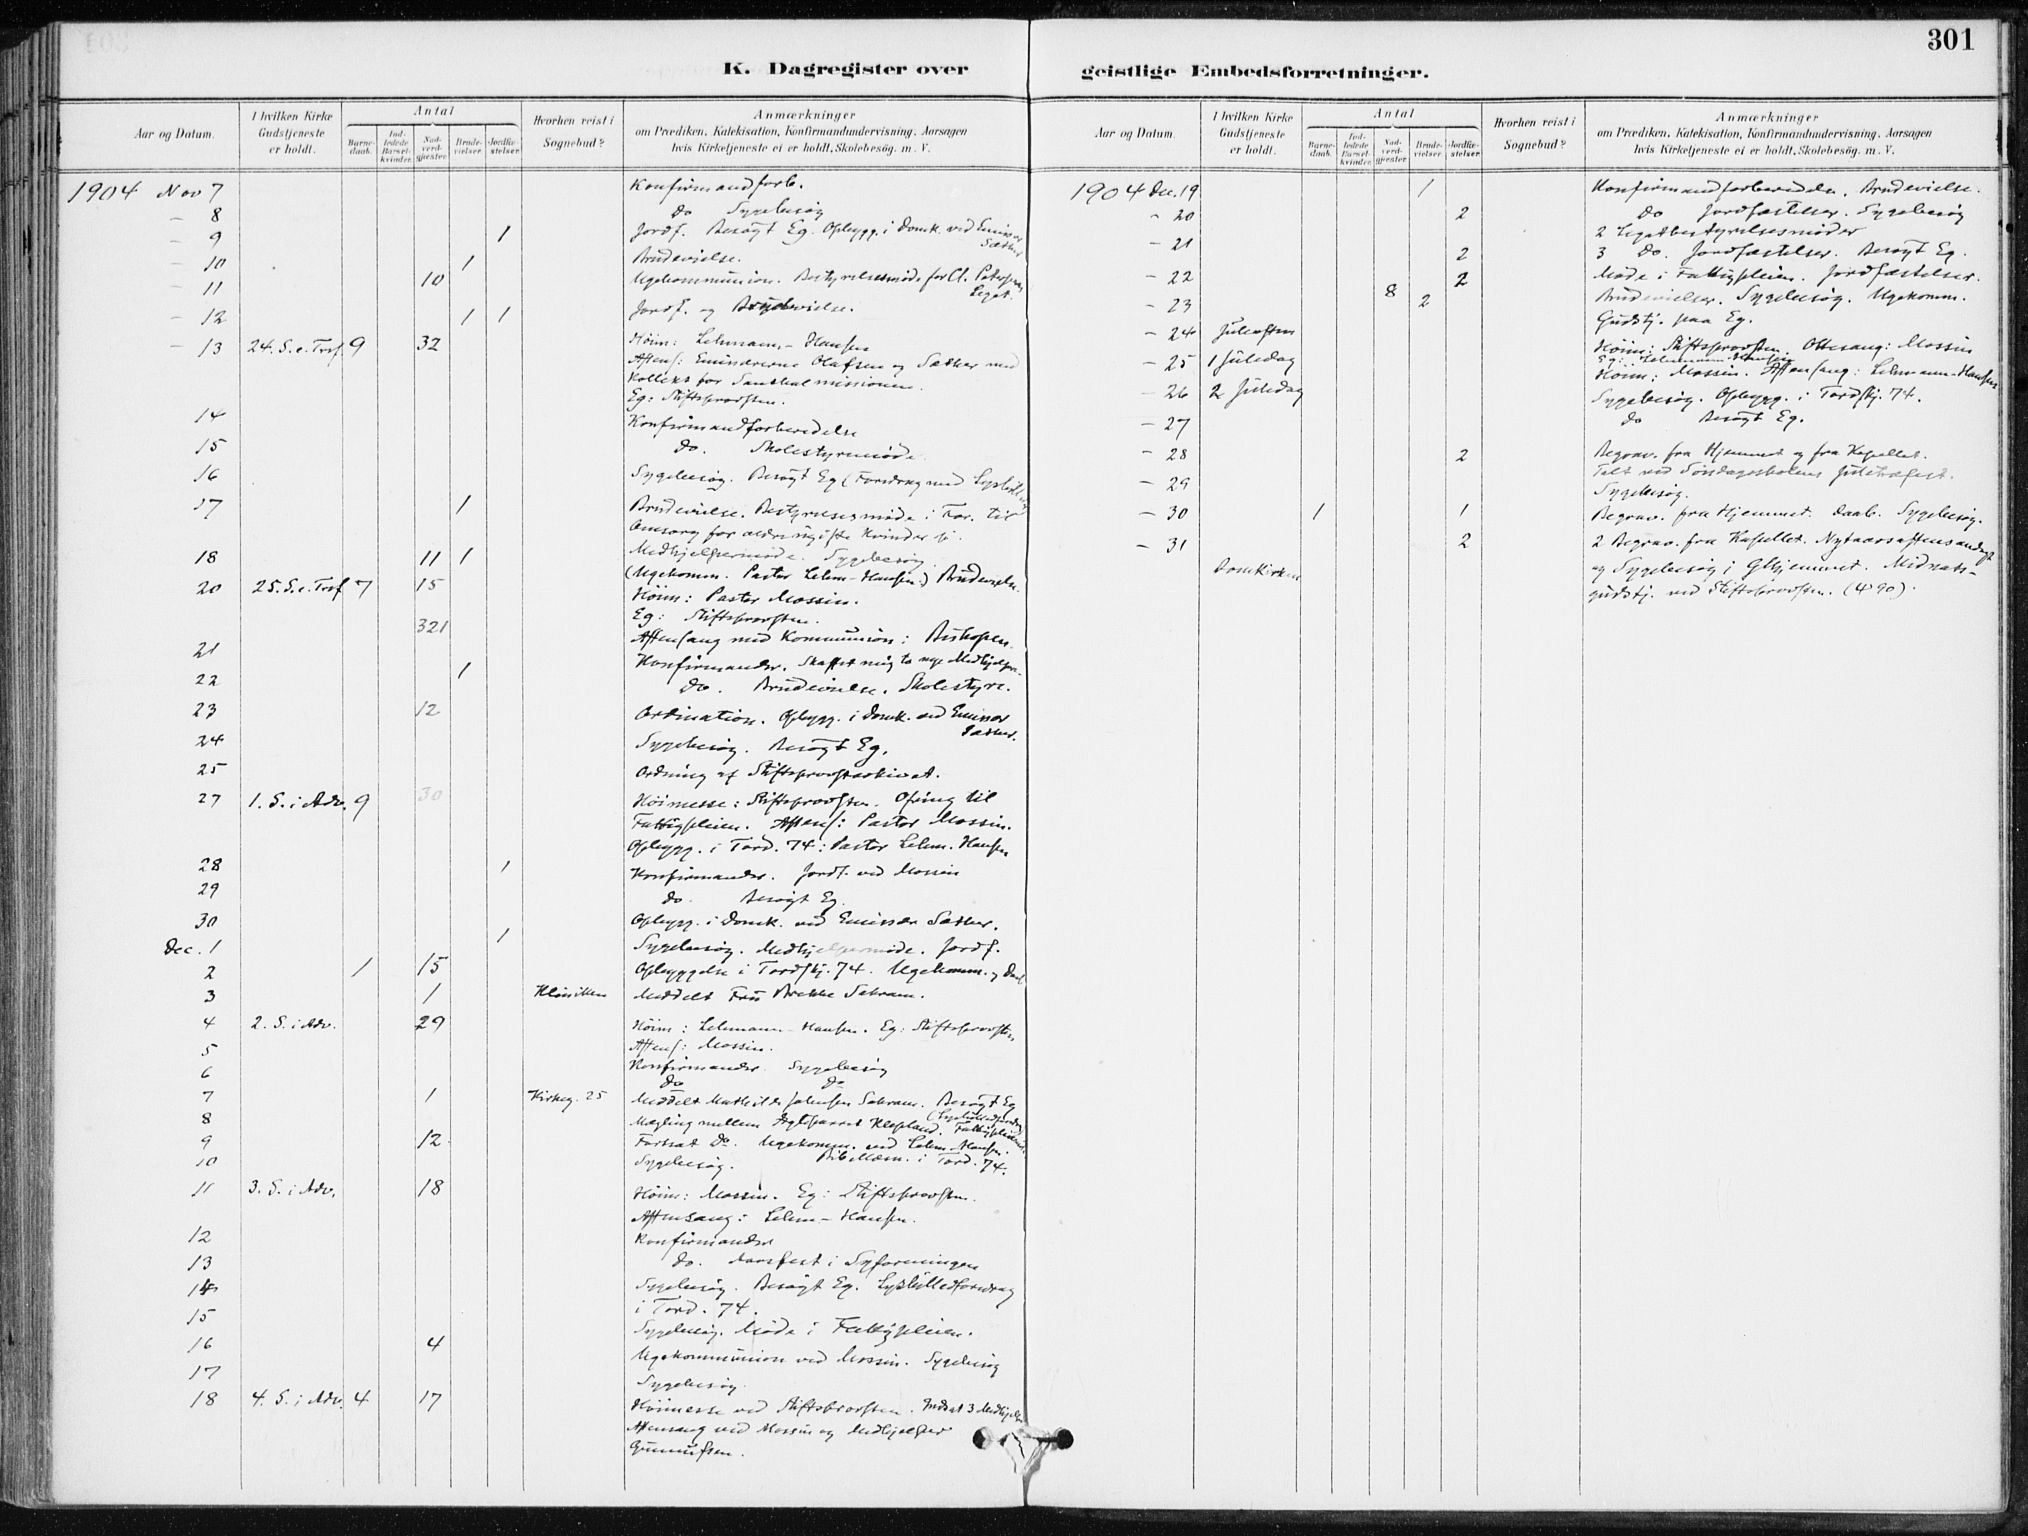 301
K. Dagregister over geistlige Embedsforretninger.
Aar og Datum.
I hvilken Kirke Gudstjeneste er holdt.
Antal
Barne-daab.
Ind-ledede Barsel-kvinder.
Nad-verd-gjester.
Brude-vielser.
Jordfæ-stelser.
Hvorhen reist i Sognebud?
Anmærkninger
om Prædiken, Katekisation, Konfirmandundervisning, Aarsagen
hvis Kirketjeneste ei er holdt, Skolebesøg. m. V.
1904 Nov 7 Konfirmandforb.
- 8 do Sygebesøg
- 9 1 Jordf. Besøgt Eg. Opbygg. i Domk. ved Emissær Sæther
- 10 1 Brudevielse.
- 11 10 Ugekommunion. Bestyrelsesmøde for Cl. Petersens Legat.
- 12 1 1 Jordf. og Brudevielse.
- 13 24. S. e. Tref. 9 32 Høim: Lehmann-Hansen
Aftens: Emisærerne Olafsen og Sæther med
Kollekt for Santhalmissionen.
Eg: Stiftsprovsten.
14 Konfirmandforberedelse
15 do. Skolestyremøde.
16 Sygebesøg. Besøgt Eg (Foredrag med Lysbilleder
17 1 Brudevielse. Bestyrelsesmøde i For. til
Omsorg for ældre ugifte Kvinder
18 11 1 Medhjelpermøde. Sygebesøg.
(Ugekomm. Pastor Lehm-Hansen.) Brudevielse.
20 25. S. e. Tref 7 15 Høim: Pastor Mossin.
Eg: Stiftsprovsten.
321 Aftensang med Kommunion: Biskopen.
21 Konfirmander. Skaffet mig to nye Medhjelpere.
22 1 do. Brudevielse. Skolestyre.
23 12 Ordination. Opbygg. i Domk. ved Emissær Sæther.
24 Sygebesøg. Besøgt Eg.
25 Ordning af Stiftsprovstarkivet.
27 1. S. i Adv. 9 30 Høimesse: Stiftsprovsten. Ofring til
Fattigpleien. Aftens: Pastor Mossin.
Opbygg. i Tord. 74: Pastor Lehm. Hansen
28 1 Konfirmander. Jordf. ved Mossin
29 do. Besøgt Eg.
30 Opbygg. i Domk. ved Emissær Sæther.
Dec. 1 1 Sygebesøg. Medhjelpermøde. Jordf.
2 1 15 Opbyggelse i Tordskj. 74. Ugekomm. og Daab
3 1 Kliniken Meddelt Fru Brekke Sakram.
4 2. S. i Adv. 29 Høim: Lehmann-Hansen. Eg: Stiftsprovsten
Aftens: Mossin.
5 Konfirmander. Sygebesøg
6 do do
7 1 Kirkeg. 25 Meddelt Mathilde Johnsen Sakram. Besøgt Eg
(Lysbilledforedrag
8 Mægling mellem Ægteparret Klepland. Fattigpleien.
9 12 Fortsat do. Ugekomm. ved Lehm-Hansen.
10 Sygebesøg. i Tord. 74.
11 3. S. i Adv. 18 Høim: Mossin. Eg: Stiftsprovsten.
Aftensang: Lehm-Hansen.
12 Konfirmander
13 do. Aarsfest i Syforeningen
14 Sygebesøg. Besøgt Eg. Lysbilledforedrag
15 i Tord. 74.
Sygebesøg. Møde i Fattigpleien.
16 4 Ugekommunion ved Mossin. Sygebesøg
17 Sygebesøg.
18 4. S. i Adv. 4 17 Høimesse ved Stiftsprovsten. Indsat 3 Medhjelp.
Aftensang ved Mossin og Medhjelper
Gunnufsen.
Aar og Datum.
I hvilken Kirke Gudstjeneste er holdt.
Antal
Barne-daab.
Ind-ledede Barsel-kvinder.
Nad-verd-gjester.
Brude-vielser.
Jordfæ-stelser.
Hvorhen reist i Sognebud?
Anmærkninger
om Prædiken, Katekisation, Konfirmandundervisning, Aarsagen
hvis Kirketjeneste ei er holdt, Skolebesøg. m. V.
1904 Dec. 19 1 Konfirmandforberedelse. Brudevielse.
- 20 2 do Jordfæstelser. Sygebesøg
2 Legatbestyrelsesmøder
- 21 2 3 do. Jordfæstelser. Besøgt Eg.
- 22 2 Møde i Fattigpleien. Jordfæstelser.
- 23 8 2 Brudevielser. Sygebesøg. Ugekomm.
- 24 Juleaften Gudstj. paa Eg.
- 25 1 Juledag Høim: Stiftsprovsten. Ottesang: Mossin
Eg: Lehmann-Hansen
- 26 2 Juledag Høim: Mossin. Aftensang: Lehmann-Hansen
- 27 Sygebesøg. Opbygg. i Tordskj. 74.
do Besøgt Eg.
- 28 2 Begrav. fra Hjemmet og fra Kapellet.
- 29 Talt ved Søndagsskolens Juletræfest.
Sygebesøg.
- 30 1 1 Begrav. fra Hjemmet. Daab. Sygebesøg.
- 31 2 2 Begrav. fra Kapellet. Nytaarsaftensandagt
Domkirken og Sygebesøg i Glhjemmet. Midnats-
gudstj. ved Stiftsprovsten. (490).